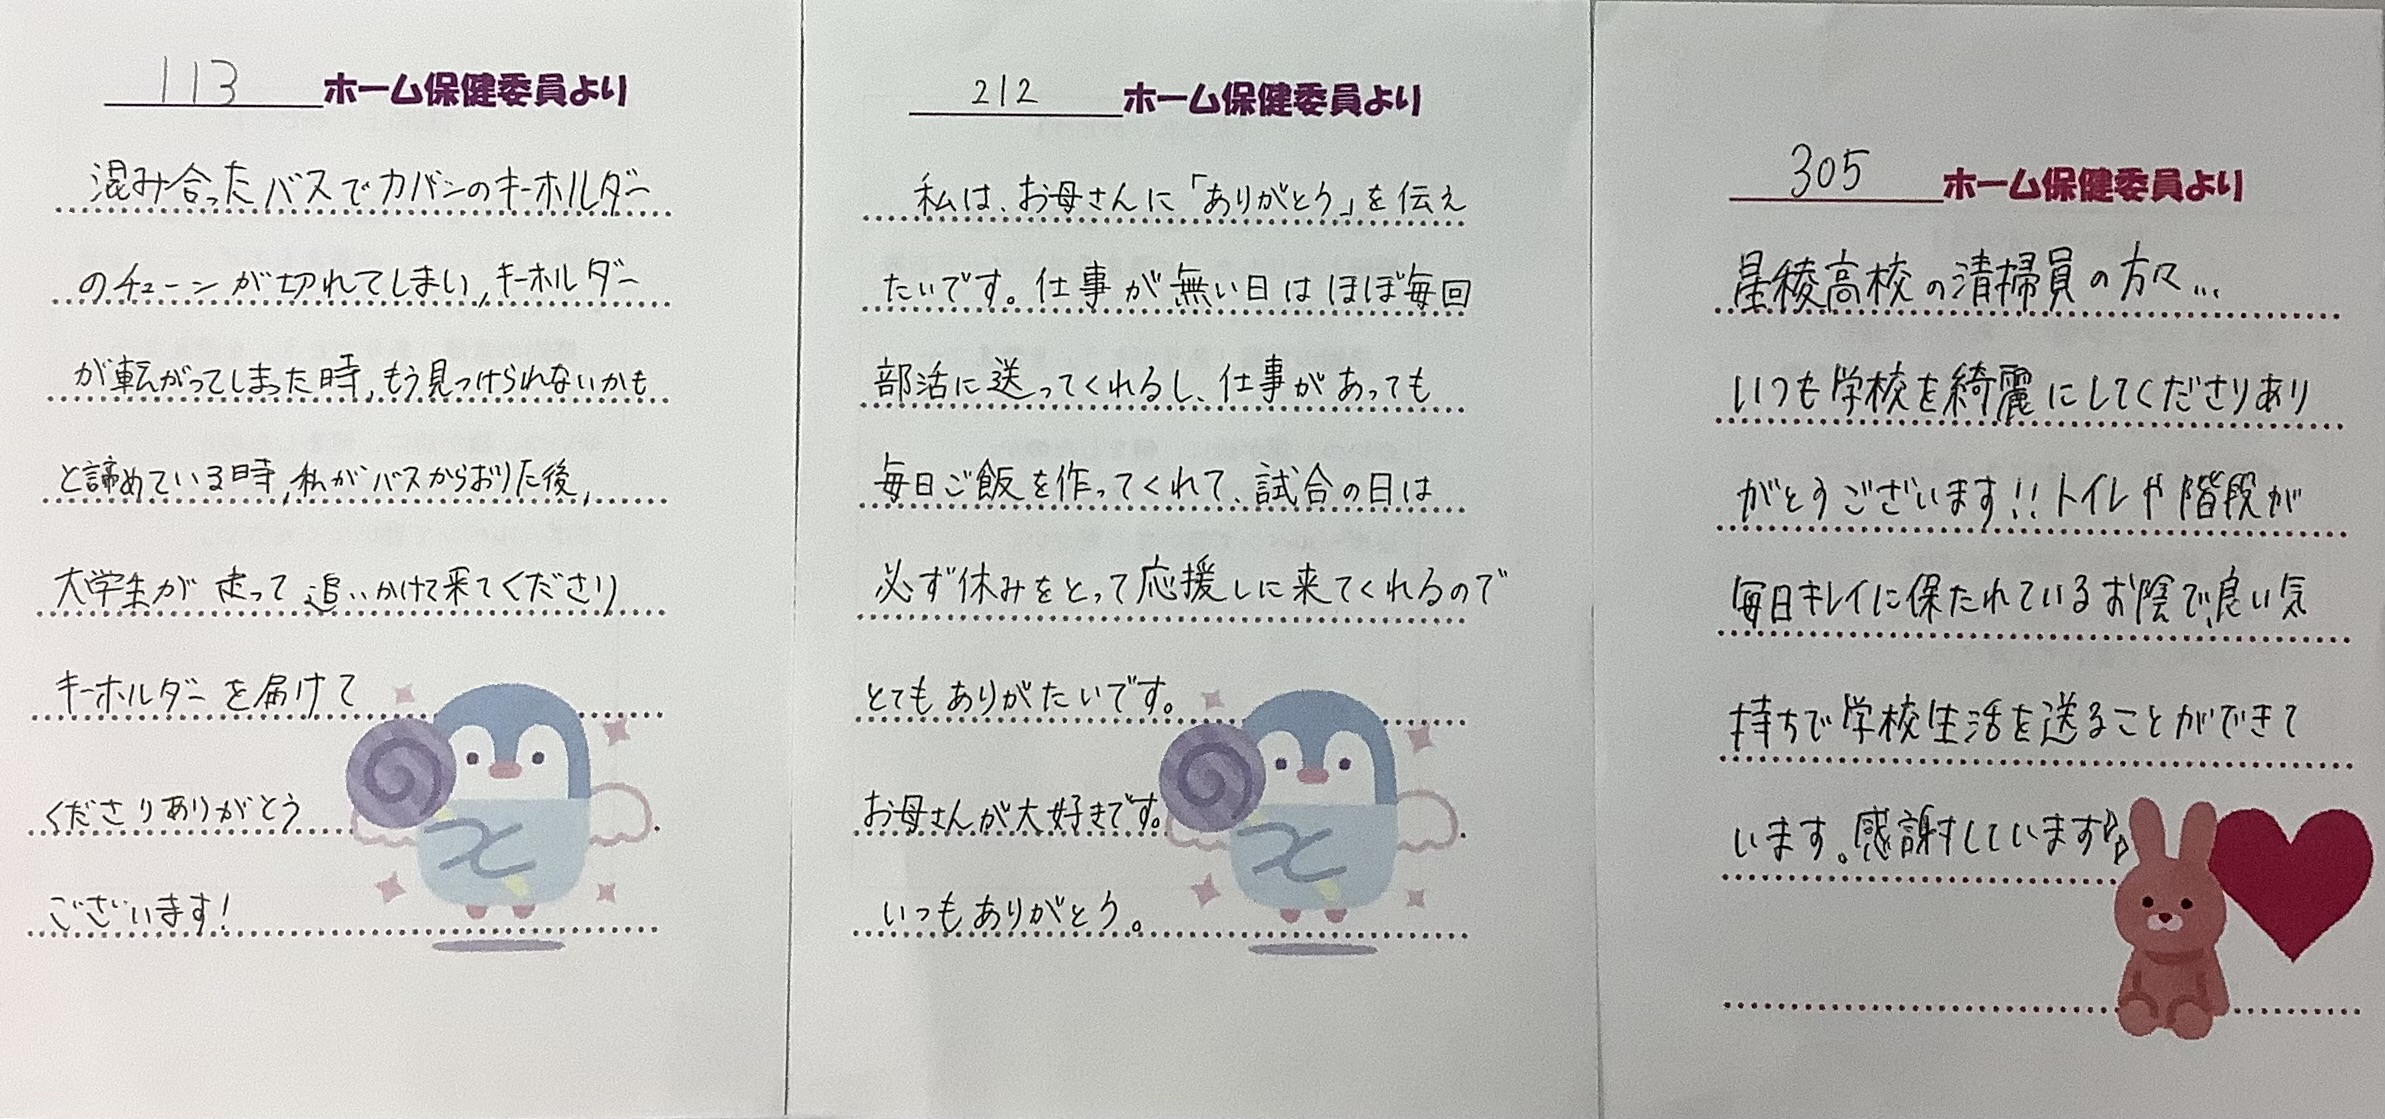 113 ホーム保健委員より
混み合ったバスでカバンのキーホルダー
のチェーンが切れてしまい,キーホルダー
が転がってしまった時,もう見つけられないかも
と諦めている時,私がバスからおりた後,
大学生が走って追いかけて来てくださり
キーホルダーを届けて
くださりありがとう
ございます!
212 ホーム保健委員より
私は、お母さんに「ありがとう」を伝え
たいです。仕事が無い日はほぼ毎回
部活に送ってくれるし、仕事があっても
毎日ご飯を作ってくれて、試合の日は
必ず休みをとって応援しに来てくれるので
とてもありがたいです。
お母さんが大好きです。
いつもありがとう。
305 ホーム保健委員より
星稜高校の清掃員の方々...
いつも学校を綺麗にしてくださりあり
がとうございます!!トイレや階段が
毎日キレイに保たれているお陰で、良い気
持ちで学校生活を送ることができて
います。感謝しています♪